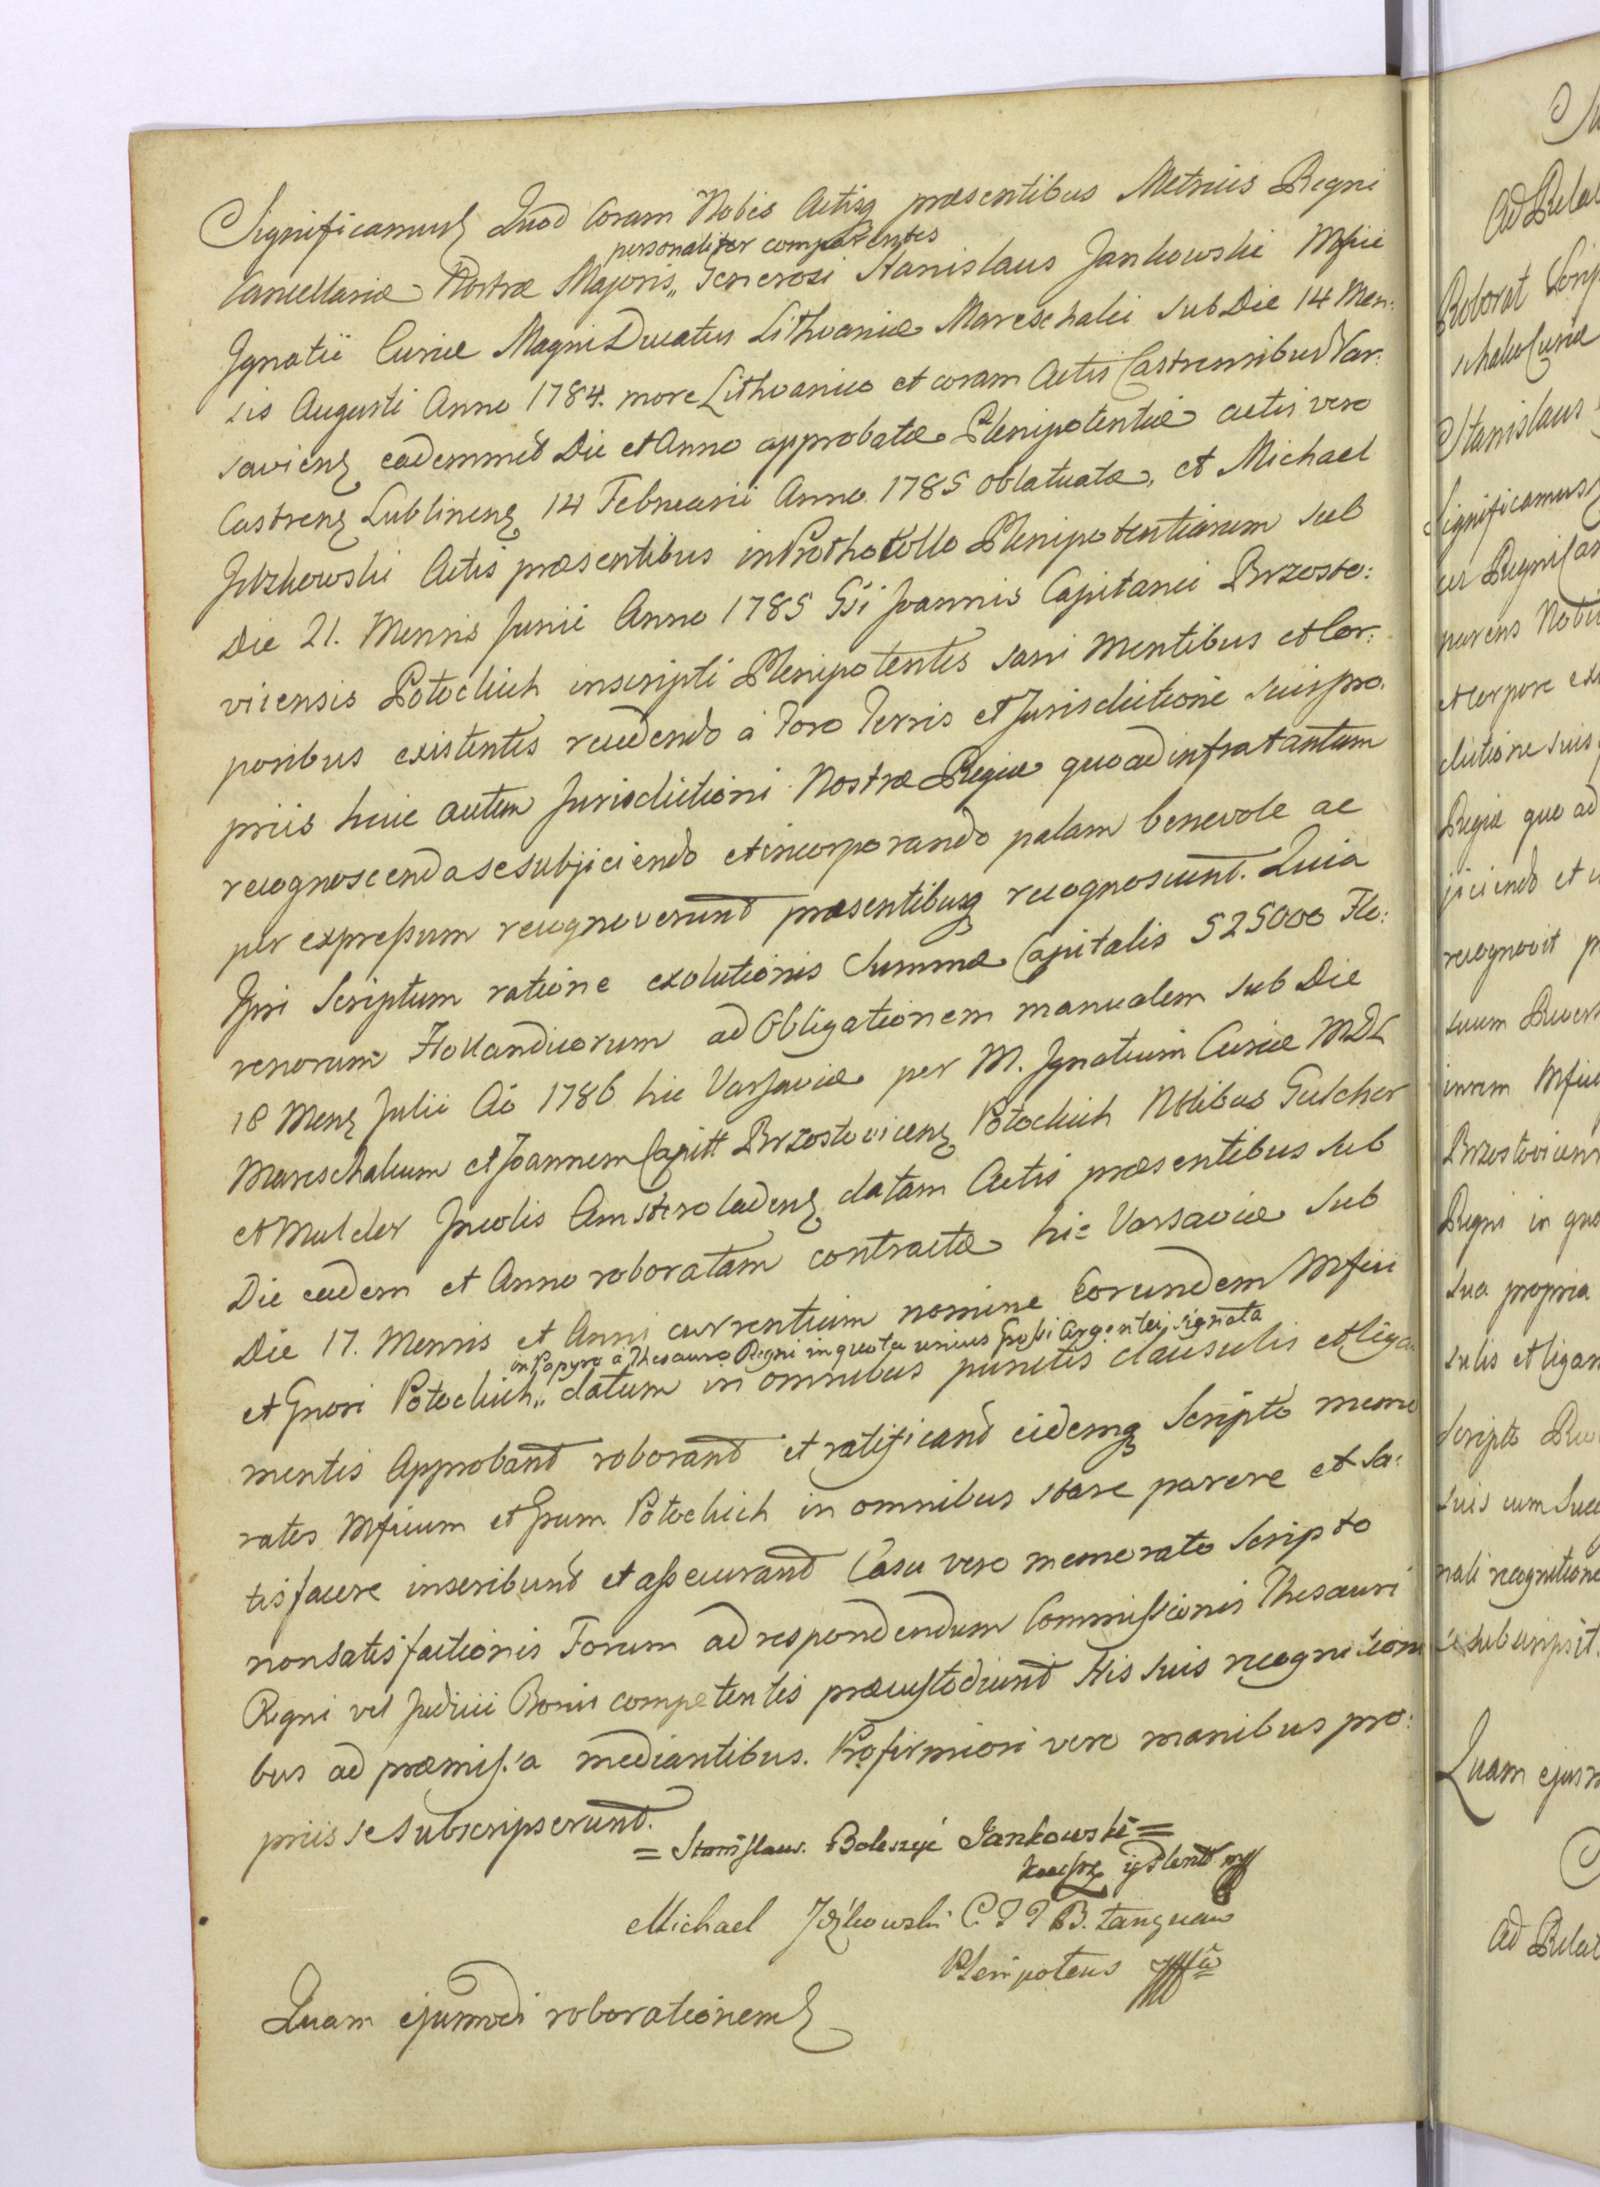 Significamus Quod Coram Nobis Actisq præsentibus Metrices Regni
personaliter comparentes
Cancellariæ Nostræ Majoris,, Generosi Stanislaus Jankowski Mfici
Ignatii Curiæ Magni Ducatus Lithvaniæ Mareschalci sub Die 14 Men:
sis Augusti Anno 1784. more Lithvanico et coram Actis Castrensibus Var:
saviens eademmet Die et Anno approbatæ Plenipotentiæ actis vero
Castrens Lublinens 14 Februarii Anno 1785 oblatuatæ, et Michael
Actis præsentibus in Prothocollo Plenipotentiarum sub
Die 21. Mensis Junii Anno 1785 Gsi Joannis Capitanei Brzesto:
viciensis Potockich inscripti Plenipotentes sani Mentibus et Cor:
poribus existentes recedendo à Foro Terris et Jurisdictione suis pro:
priis huic autem Jurisdictioni Nostræ Regiæ quo ad infra tantum
recognoscenda se subjiciendo et incorporando palam benevole ac
per expressum recognoverunt præsentibusq recognoscunt. Quia
Ipsi Scriptum ratione exolutionis Summæ Capitalis 525000 Flo:
renorum Hollandicorum ad Obligationem manualem sub Die
18 Mens Julii Aō 1786 hic Varsaviæ per M. Ignatium Curiæ MDL
Mareschalcum et Joannem Capitt Brzostovicens Potockich Nobilibus Gulcher
et Mulder Incolis Amsterolodens datam Actis præsentibus sub
Die eadem et Anno roboratam contractæ hic Varsaviæ sub
Die 17. Mensis et Anni currentium nomine Eorundem Mfici
in Papyro à Thesauro Regni in quota unius Grossi Argentei signata
et Gnosi Potockich,, datum in omnibus punctis clausulis et liga:
mentis Approbant roborant et ratificant eidemq Scripto memo
ratos Mficum et Gsum Potockich in omnibus stare parere et sa:
tisfacere inscribunt et assecurant Casu vero memorato Scripto
nonsatisfactionis Forum ad respondendum Commissionis Thesauri
Regni vel Judicii Bonis competentis præcustodiunt His suis recognitioni
bus ad præmissa mediantibus. Pro firmiori vero manibus pro:
priis se subscripserunt.
= Stanislaus Jankowski =
Michael B. tanquam
Plenipotens
Quam ejusmodi roborationem